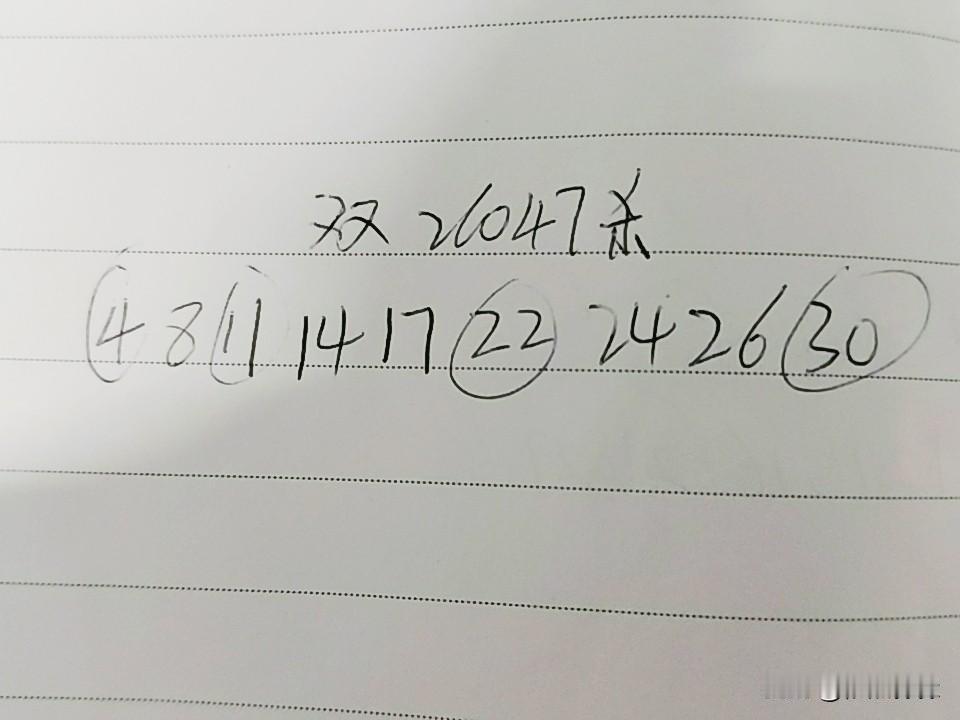 双 26047 杀
4 8 11 14 17 22 24 26 30